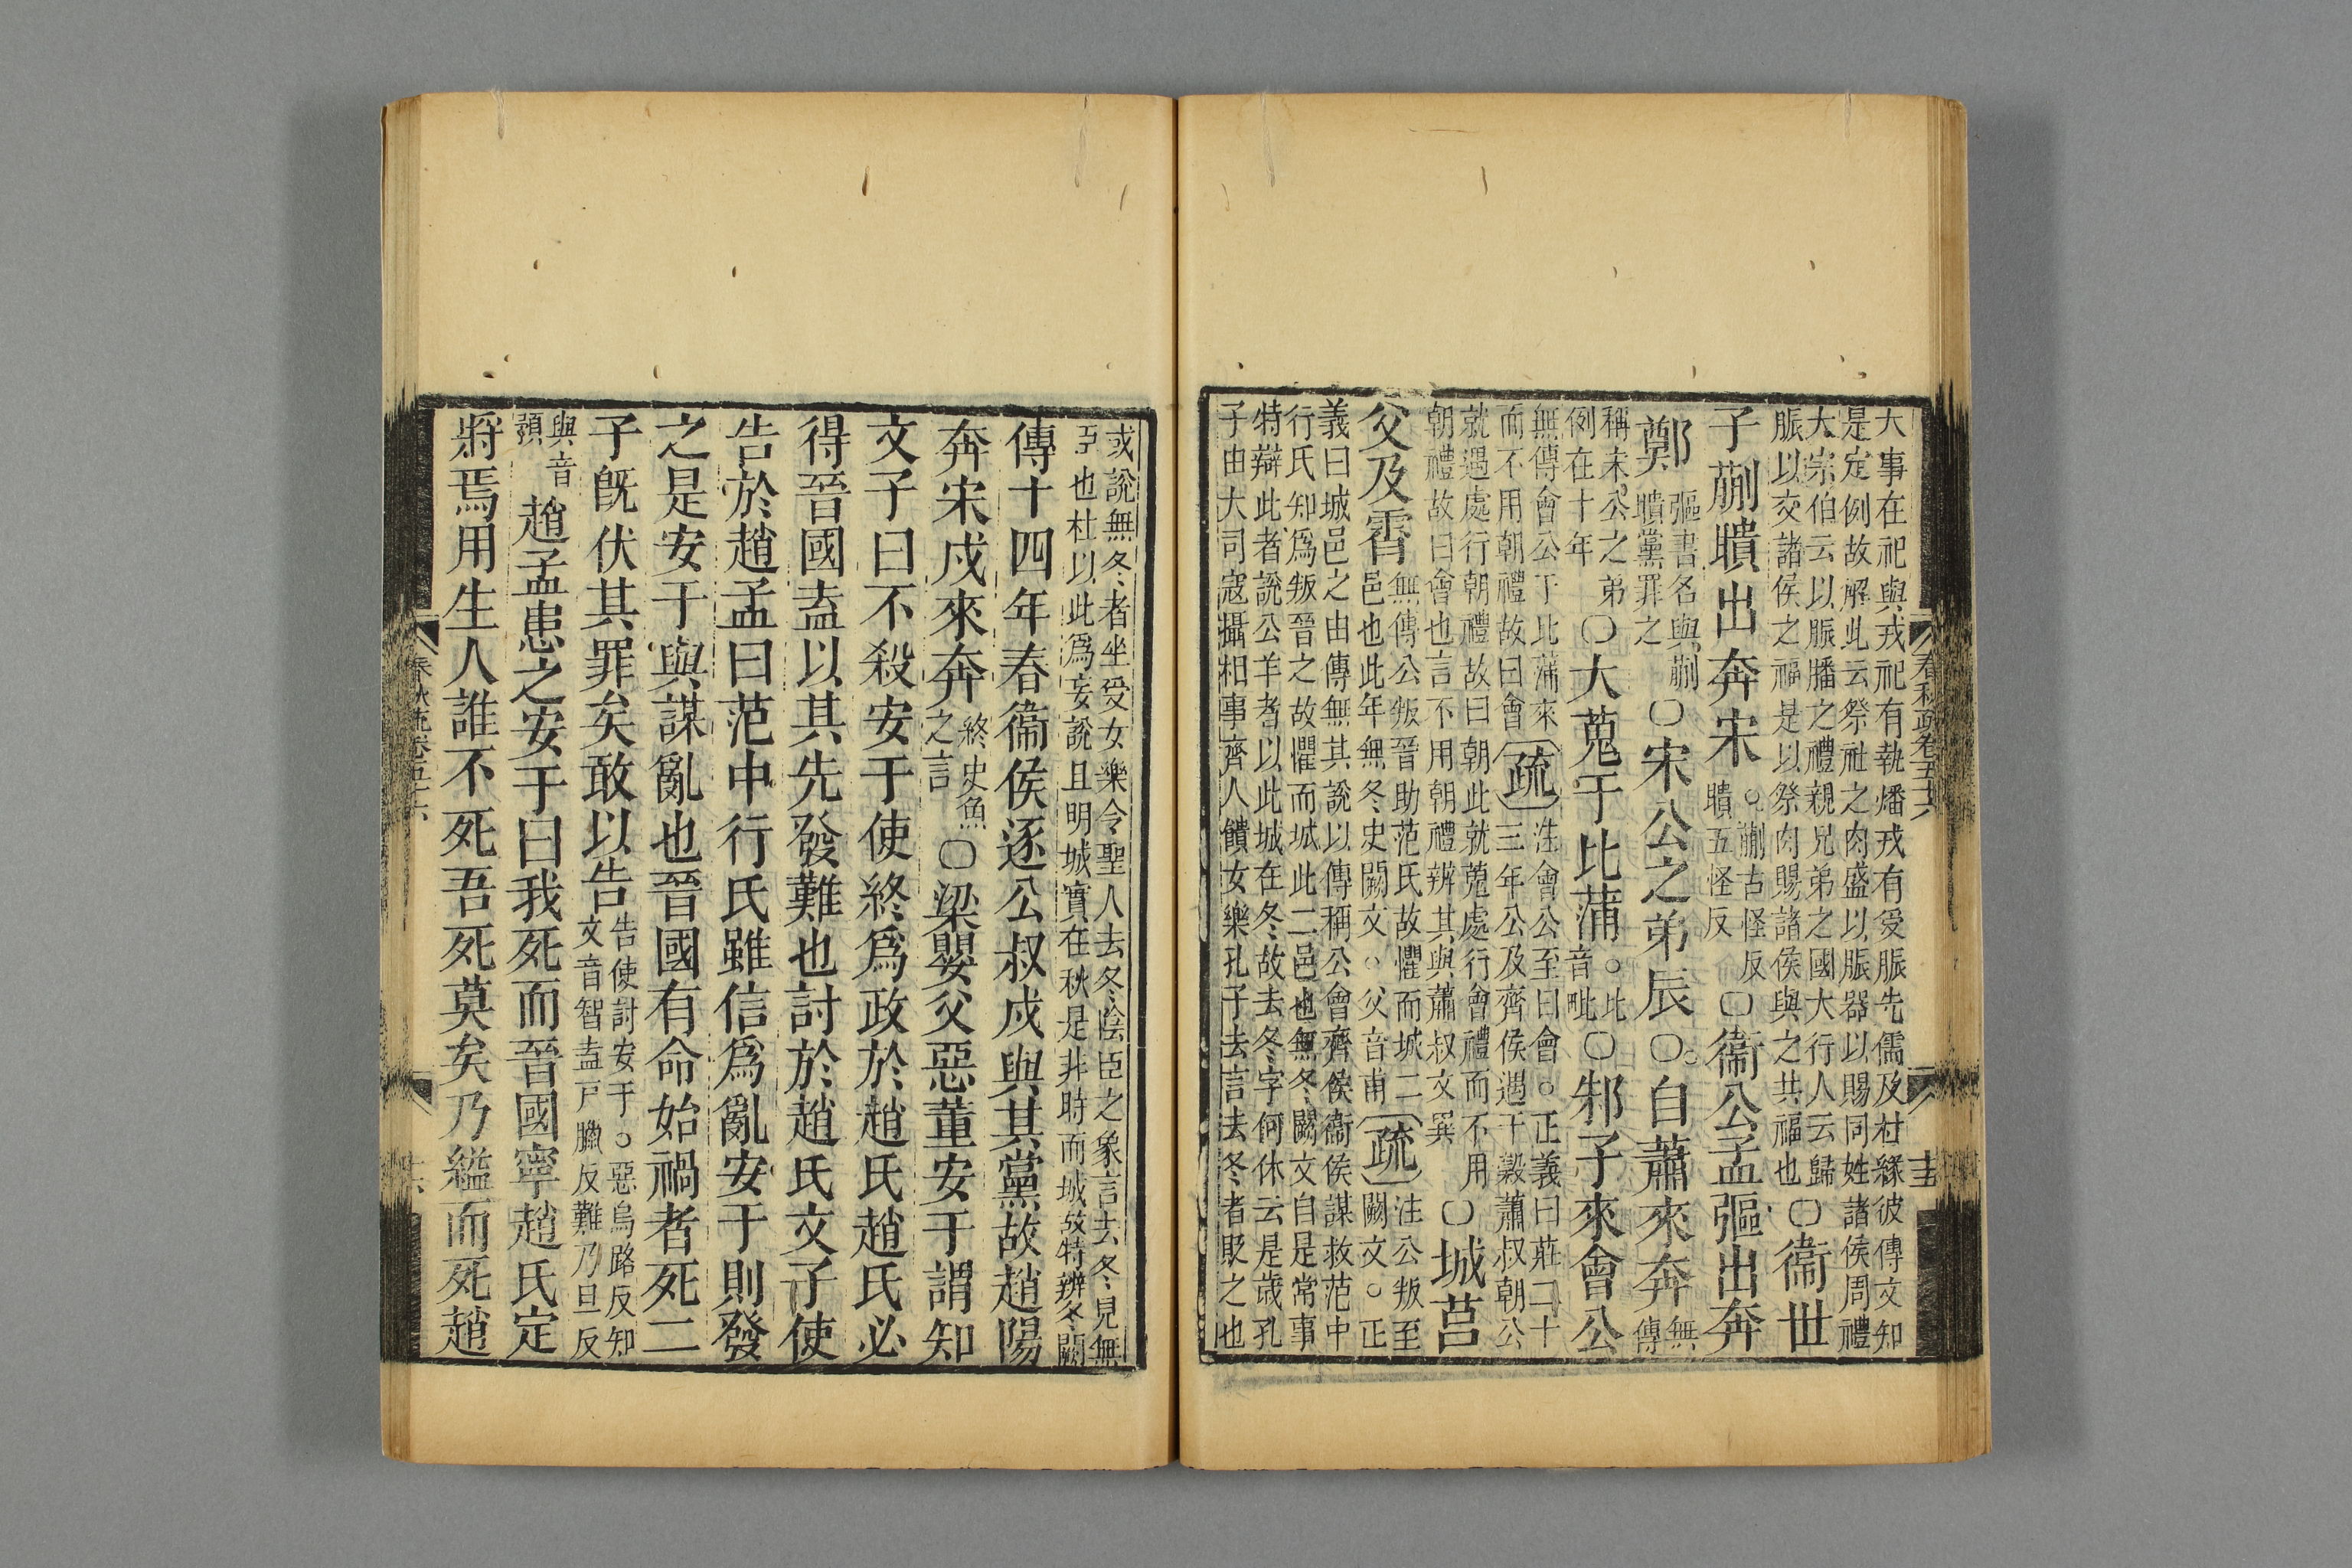 大事在祀與戎祀有執燔戎有受脤先儒及杜緣彼傳文知
是定例故解此云祭社之肉盛以脤器以賜同姓諸侯周禮
大宗伯云以脤膰之禮親兄弟之國大行人云歸
脤以交諸侯之福是以祭肉賜諸侯與之共福也〇衞世
子蒯聵出奔宋。蒯古怪反聵五怪反〇衞公孟彄出奔
鄭彄書名與蒯聵黨罪之〇宋公之弟辰。〇自蕭來奔無傳
稱宋公之弟例在十年〇大蒐于比蒲。比音毗〇邾子來會公
無傳會公于比蒲來而不用朝禮故曰會疏注會公至曰會。正義曰莊二十三年公及齊侯遇于穀蕭叔朝公
就遇處行朝禮故曰朝此就蒐處行會禮而不用
朝禮故曰會也言不用朝禮辨其與蕭叔文異〇城莒
父及霄無傳公叛晉助范氏故懼而城二邑也此年無冬史闕文。父音甫疏注公叛至闕文。正
義曰城邑之由傳無其說以傳稱公會齊侯衞侯謀救范中
行氏知爲叛晉之故懼而城此二邑也無冬闕文自是常事
特辯此者說公羊者以此城在冬故去冬字何休云是歲孔
子由大司寇攝相事齊人饋女樂孔子去言去冬者貶之也
春秋疏卷五十六
或說無冬者坐受女樂令聖人去冬陰臣之象言去冬見無
臣也杜以此爲妄說且明城實在秋是非時而城故特辨冬闕
傳十四年春衞侯逐公叔戍與其黨故趙陽
奔宋戍來奔終史魚之言〇梁嬰父惡董安于謂知
文子曰不殺安于使終爲政於趙氏趙氏必
得晉國盍以其先發難也討於趙氏文子使
告於趙孟曰范中行氏雖信爲亂安于則發
之是安于與謀亂也晉國有命始禍者死二
子旣伏其罪矣敢以告告使討安于。惡烏路反知文音智盍戸臘反難乃旦反
與音預趙孟患之安于曰我死而晉國寧趙氏定
將焉用生人誰不死吾死莫矣乃縊而死趙
春秋疏卷五十六
十六